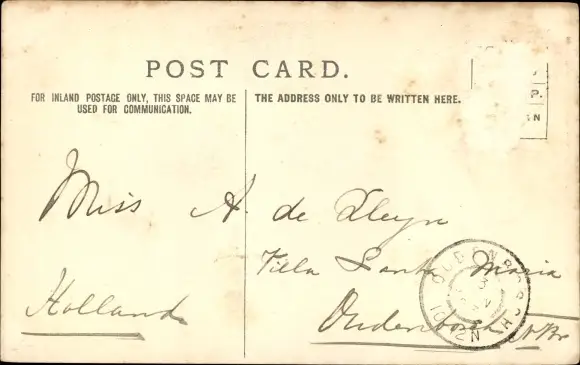 POST CARD.
FOR INLAND POSTAGE ONLY, THIS SPACE MAY BE
USED FOR COMMUNICATION.
THE ADDRESS ONLY TO BE WRITTEN HERE.
P.
N
Miss A. de Kleyn
Villa Santa Maria
Holland
Oudenbosch N Br
OUDENBOSCH